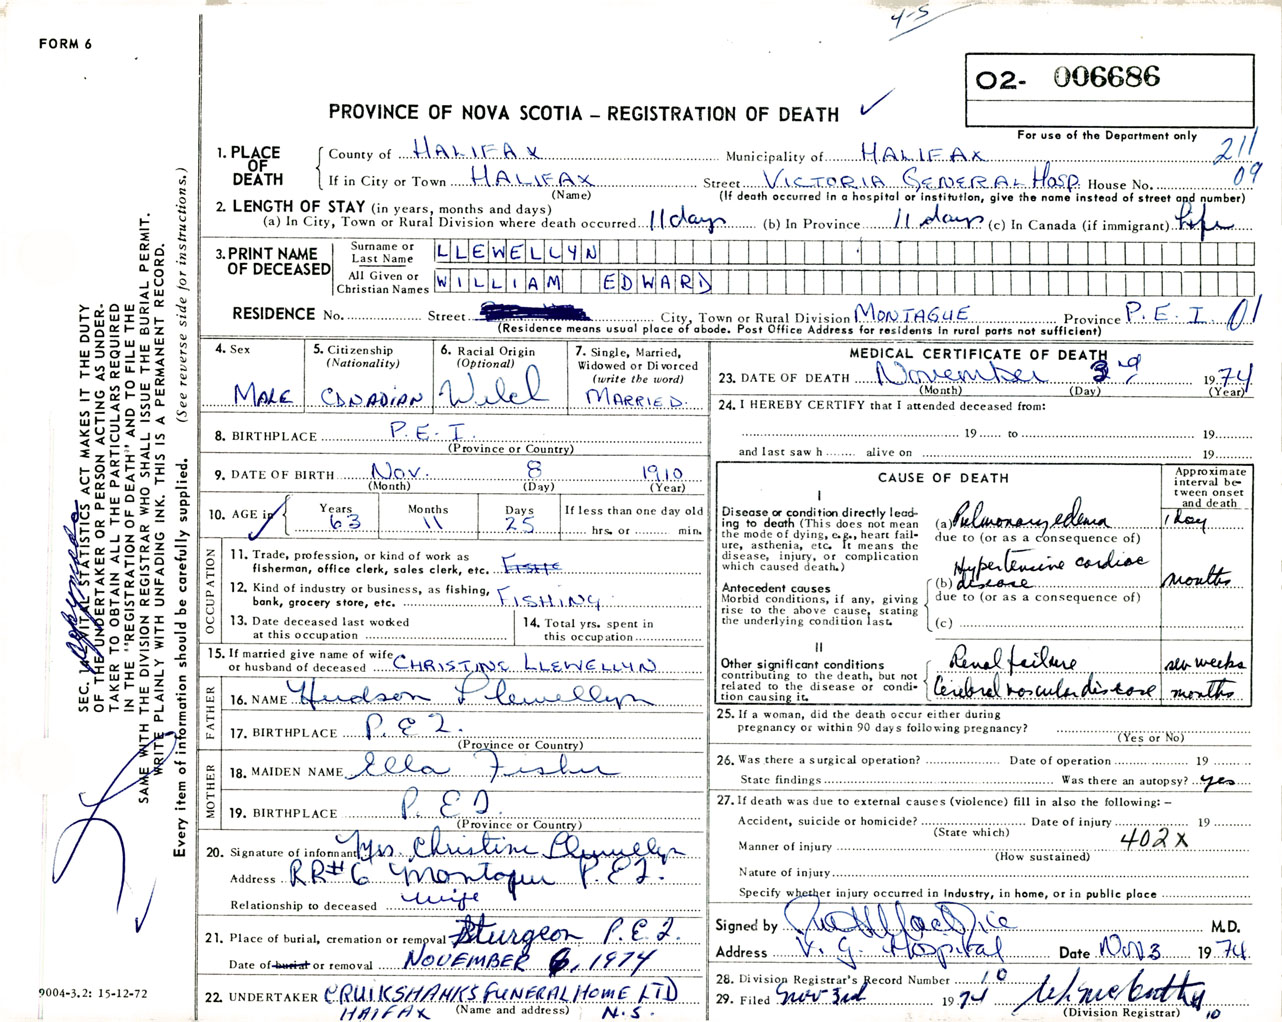 4-5
FORM 6
02- 006686
PROVINCE OF NOVA SCOTIA – REGISTRATION OF DEATH
For use of the Department only
211
09
1. PLACE OF DEATH
County of HALIFAX Municipality of HALIFAX
If in City or Town HALIFAX Street VICTORIA GENERAL HOSP. House No.
(Name) (If death occurred in a hospital or institution, give the name instead of street and number)
2. LENGTH OF STAY (in years, months and days)
(a) In City, Town or Rural Division where death occurred 11 days (b) In Province 11 days (c) In Canada (if immigrant) Life
3. PRINT NAME OF DECEASED
Surname or Last Name LLEWELLYN
All Given or Christian Names WILLIAM EDWARD
RESIDENCE No. Street City, Town or Rural Division MONTAGUE Province P.E.I. 01
(Residence means usual place of abode. Post Office Address for residents in rural parts not sufficient)
4. Sex
MALE
5. Citizenship (Nationality)
CANADIAN
6. Racial Origin (Optional)
7. Single, Married, Widowed or Divorced (write the word)
MARRIED
8. BIRTHPLACE P.E.I.
(Province or Country)
9. DATE OF BIRTH Nov. 8 1910
(Month) (Day) (Year)
10. AGE in Years 63 Months 11 Days 25 If less than one day old
hrs. or min.
OCCUPATION
11. Trade, profession, or kind of work as
fisherman, office clerk, sales clerk, etc.
12. Kind of industry or business, as fishing,
bank, grocery store, etc. FISHING
13. Date deceased last worked
at this occupation
14. Total yrs. spent in
this occupation
15. If married give name of wife
or husband of deceased CHRISTINE LLEWELLYN
FATHER
16. NAME Hudson Llewellyn
17. BIRTHPLACE P.E.I.
(Province or Country)
MOTHER
18. MAIDEN NAME Ella Fisher
19. BIRTHPLACE P.E.I.
(Province or Country)
20. Signature of informant Mrs Christine Llewellyn
Address RR#6 Montague P.E.I.
Relationship to deceased wife
21. Place of burial, cremation or removal Sturgeon P.E.I.
Date of burial or removal NOVEMBER 6, 1974
22. UNDERTAKER CRUIKSHANKS FUNERAL HOME LTD
(Name and address)
HAIFAX N.S.
MEDICAL CERTIFICATE OF DEATH
23. DATE OF DEATH November 3rd 1974
(Month) (Day) (Year)
24. I HEREBY CERTIFY that I attended deceased from:
19 to 19
and last saw h alive on 19
CAUSE OF DEATH
Approximate interval between onset and death
I
Disease or condition directly leading to death (This does not mean the mode of dying, e.g., heart failure, asthenia, etc. It means the disease, injury, or complication which caused death.)
(a) Pulmonary edema 1 day
due to (or as a consequence of)
Antecedent causes
Morbid conditions, if any, giving rise to the above cause, stating the underlying condition last.
Hypertensive cardiac
(b) disease months
due to (or as a consequence of)
(c)
II
Other significant conditions contributing to the death, but not related to the disease or condition causing it.
Renal failure weeks
Cerebral vascular disease months
25. If a woman, did the death occur either during
pregnancy or within 90 days following pregnancy?
(Yes or No)
26. Was there a surgical operation? Date of operation 19
State findings Was there an autopsy? yes
27. If death was due to external causes (violence) fill in also the following: –
Accident, suicide or homicide? Date of injury 19
(State which)
402X
Manner of injury
(How sustained)
Nature of injury
Specify whether injury occurred in Industry, in home, or in public place
Signed by M.D.
Address V. G. Hospital Date Nov 3 1974
28. Division Registrar's Record Number 10
29. Filed Nov 3rd 1974
(Division Registrar) 10
SEC. 1 VITAL STATISTICS ACT MAKES IT THE DUTY
OF THE UNDERTAKER OR PERSON ACTING AS UNDER-
TAKER TO OBTAIN ALL THE PARTICULARS REQUIRED
IN THE "REGISTRATION OF DEATH" AND TO FILE THE
SAME WITH THE DIVISION REGISTRAR WHO SHALL ISSUE THE BURIAL PERMIT.
WRITE PLAINLY WITH UNFADING INK. THIS IS A PERMANENT RECORD.
Every item of information should be carefully supplied. (See reverse side for instructions.)
9004-3.2: 15-12-72